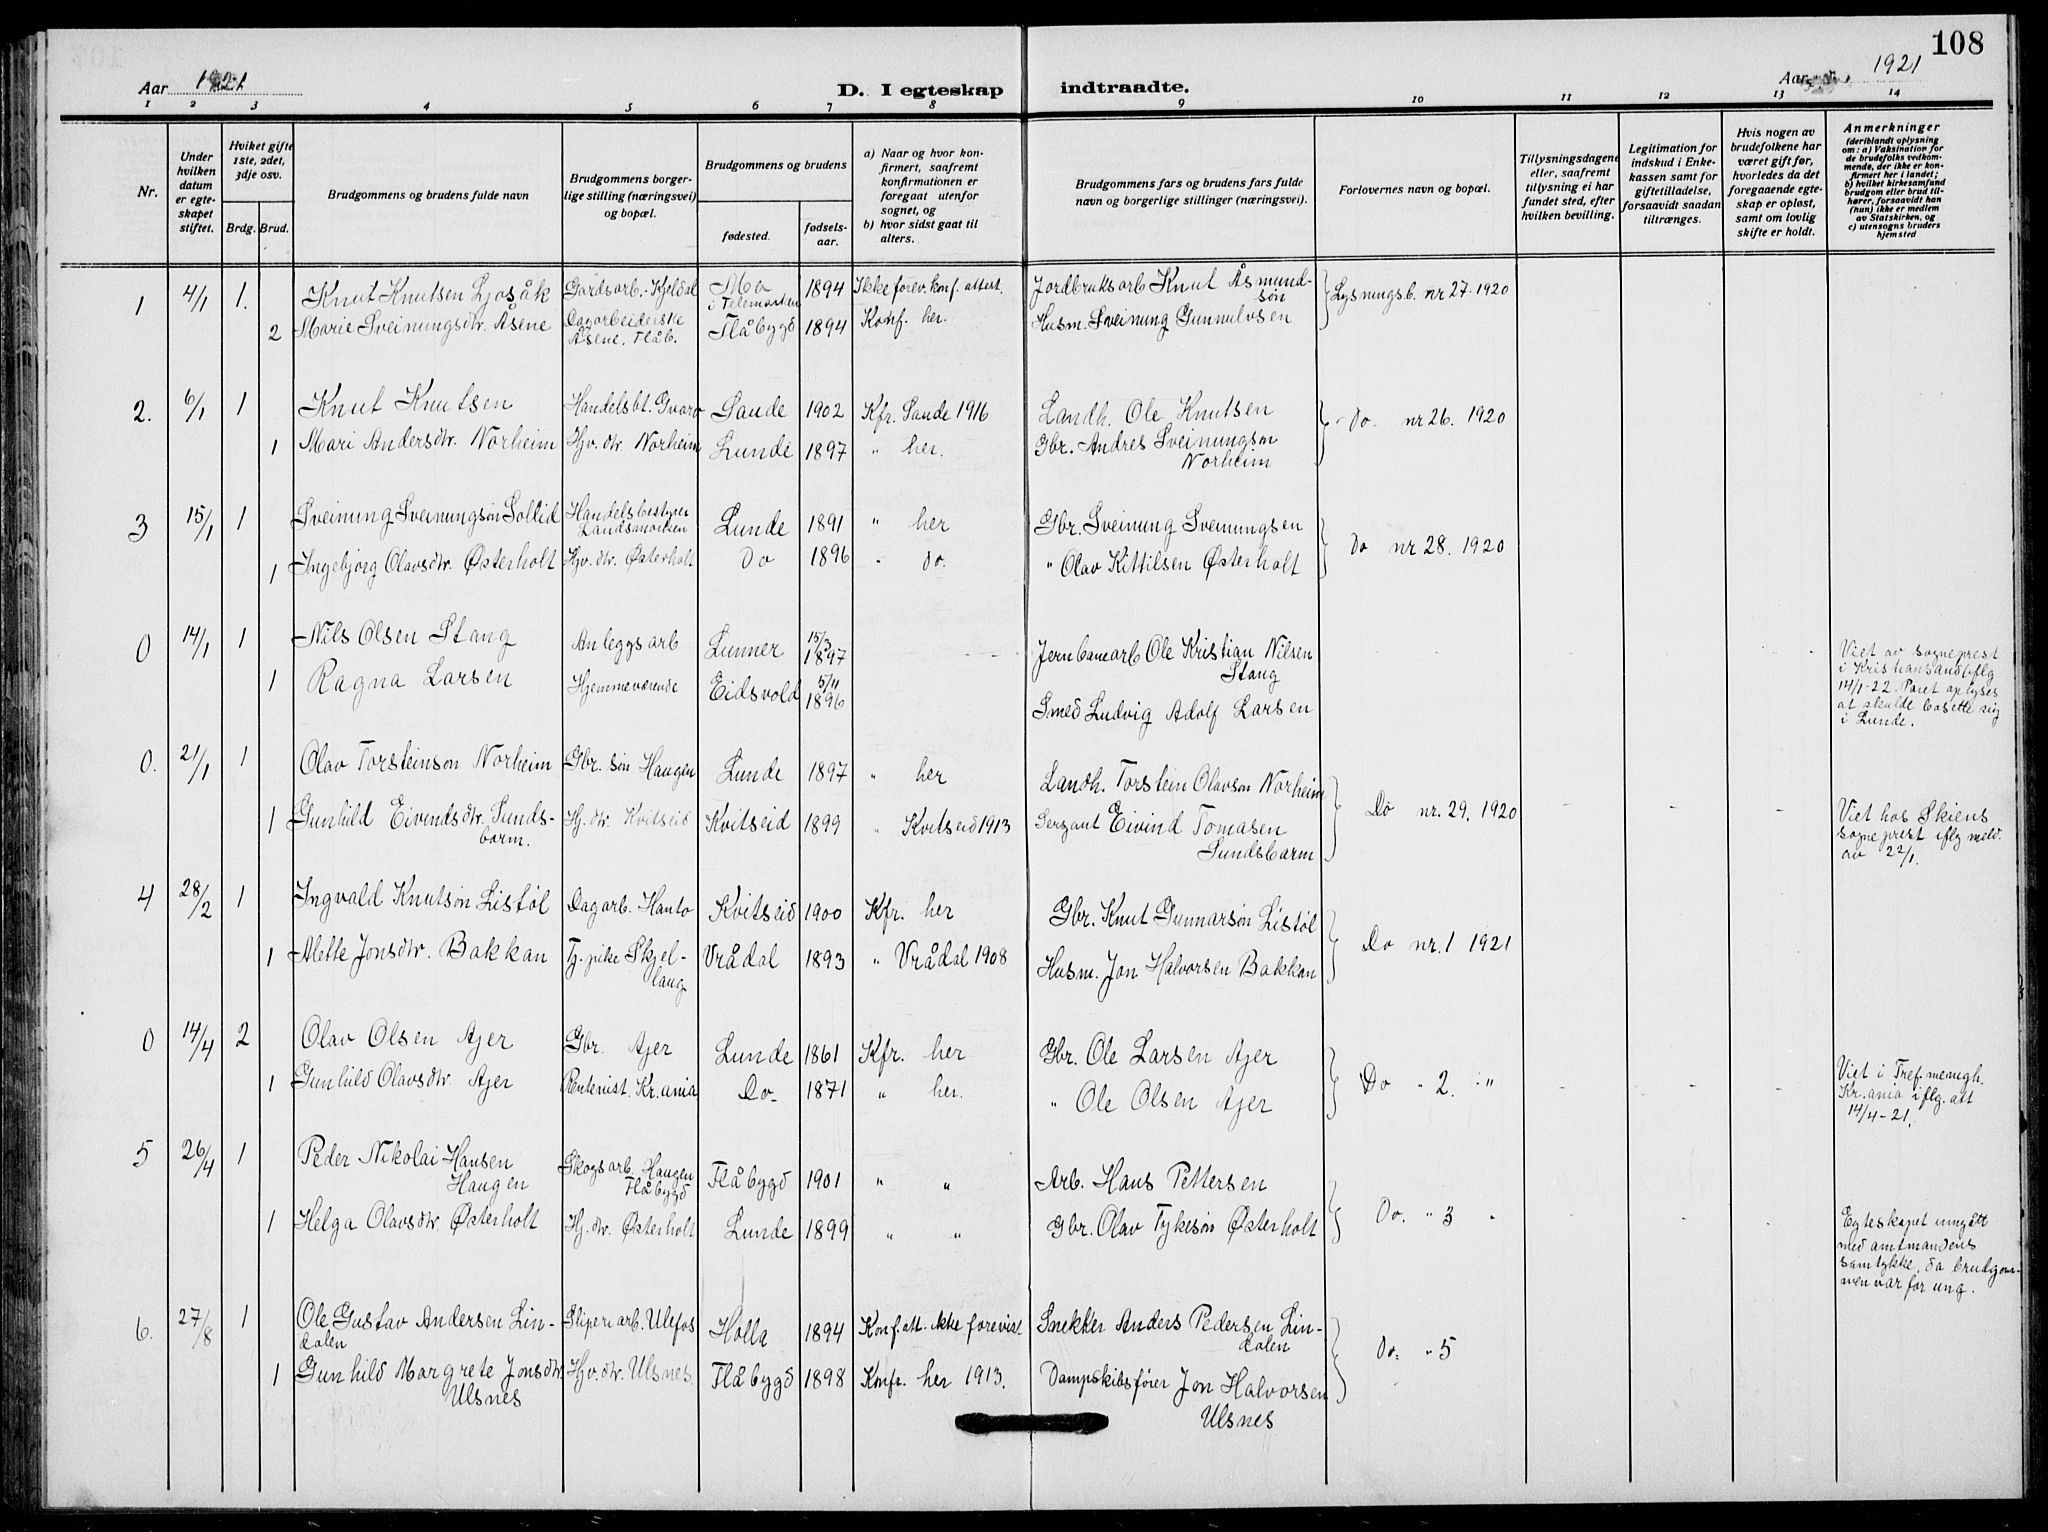 108
Aar 1921
D. I egteskap indtraadte.
Aar 1921
1 2 3 4 5 6 7 8 9 10 11 12 13 14
Nr.
Under hvilken datum er egteskapet stiftet.
Hviket gifte 1ste, 2det, 3dje osv.
Brdg. Brud.
Brudgommens og brudens fulde navn
Brudgommens borgerlige stilling (næringsvei) og bopæl.
Brudgommens og brudens
fødested.
fødselsaar.
a) Naar og hvor konfirmert, saafremt konfirmationen er foregaat utenfor sognet, og
b) hvor sidst gaat til alters.
Brudgommens fars og brudens fars fulde navn og borgerlige stillinger (næringsvei).
Forlovernes navn og bopæl.
Tillysningsdagene eller, saafremt tillysning ei har fundet sted, efter hvilken bevilling.
Legitimation for indskud i Enkekassen samt for giftetilladelse, forsaavidt saadan tiltrænges.
Hvis nogen av brudefolkene har været gift før, hvorledes da det foregaaende egteskap er opløst, samt om lovlig skifte er holdt.
Anmerkninger (deriblandt oplysning om: a) Vaksination for de brudefolks vedkommende, der ikke er konfirmert her i landet; b) hvilket kirkesamfund brudgom eller brud tilhører, forsaavidt han (hun) ikke er medlem av Statskirken, og c) utensogns bruders hjemsted
1 4/1 1. Knut Knutsen Ljosåk Gardsarb. Kjeldal Mo i Telemarken 1894 Ikke forev. konf. attest. Jordbruksarb Knut Åsmundsøn Lysningsb. nr 27. 1920
2 Marie Sveinungsdtr. Åsene Dagarbeiderske Åsene. Flåb. Flåbygd 1894 Konf. her. Husm. Sveinung Gunnulvsen
2. 6/1 1 Knut Knutsen Handelsbt. Gvarv Saude 1902 Kfr. Saude 1916 Landh. Ole Knutsen Do. nr 26. 1920
1 Mari Andersdtr. Norheim Hjv. dtr. Norheim Lunde 1897 " her. Gbr. Andres Sveinungsøn Norheim
3 15/1 1 Sveinung Sveinungsøn Sollid Handelsbestyrer Landsmarken Lunde 1891 " her Gbr. Sveinung Sveinungsen Do nr 28. 1920
1 Ingebjørg Olavsdtr. Østerholt Hjv. dtr. Østerholt Do 1896 " do. " Olav Kittilsen Østerholt
0 14/1 1 Nils Olsen Stang Anleggsarb Lunner 15/3 1897 Jernbanearb Ole Kristian Nilsen Stang
1 Ragna Larsen Hjemmeværende Eidsvold 5/11 1896 Smed Ludvig Adolf Larsen
Viet av sogneprest i Kristiansand iflg 14/1-22. Paret oplyses at skulde bosette sig i Lunde.
0. 21/1 1 Olav Torsteinsøn Norheim Gbr. søn Haugen Lunde 1897 " her Landh. Torstein Olavson Norheim Do nr. 29. 1920
1 Gunhild Eivindsdtr. Sundsbarm. Hj. dtr. Kvitseid Kvitseid 1899 " Kvitseid 1913 Sersant Eivind Tomasen Sundsbarm
Viet hos Skiens sogneprest iflg meld. av 22/1.
4 28/2 1 Ingvald Knutsøn Listøl Dagarb. Hanto Kvitseid 1900 Kfr. her Gbr. Knut Gunnarsøn Listøl Do nr. 1 1921
1 Alette Jonsdtr. Bakkan Tj. pike Skjellaug Vrådal 1893 " Vrådal 1908 Husm. Jon Halvorsen Bakkan
0 14/4 2 Olav Olsen Ajer Gbr. Ajer Lunde 1861 Kfr. her Gbr. Ole Larsen Ajer Do " 2. "
1 Gunhild Olavsdtr. Ajer Rentenist. Kr.ania Do 1871 " her. " Ole Olsen Ajer
Viet i Tref. menigh. Kr.ania iflg. att 14/4-21.
5 26/4 1 Peder Nikolai Hansen Haugen Skogsarb. Haugen Flåbygd Flåbygd 1901 " " Arb. Hans Pettersen Do. " 3 "
1 Helga Olavsdtr Østerholt Hj. dtr. Østerholt Lunde 1899 " " Gbr. Olav Tykesøn Østerholt
Egteskapet inngått med amtmandens samtykke, da brudgommen var for ung.
6. 27/8 1 Ole Gustav Andersen Lindalen Sliperiarb. Ulefos Holla 1894 Konf. att. ikke forevist Snekker Anders Pedersen Lindalen Do. " 5
1 Gunhild Margrete Jonsdtr. Ulsnes Hjv. dtr. Ulsnes. Flåbygd 1898 Konfr. her 1913. Dampskibsfører Jon Halvorsen Ulsnes